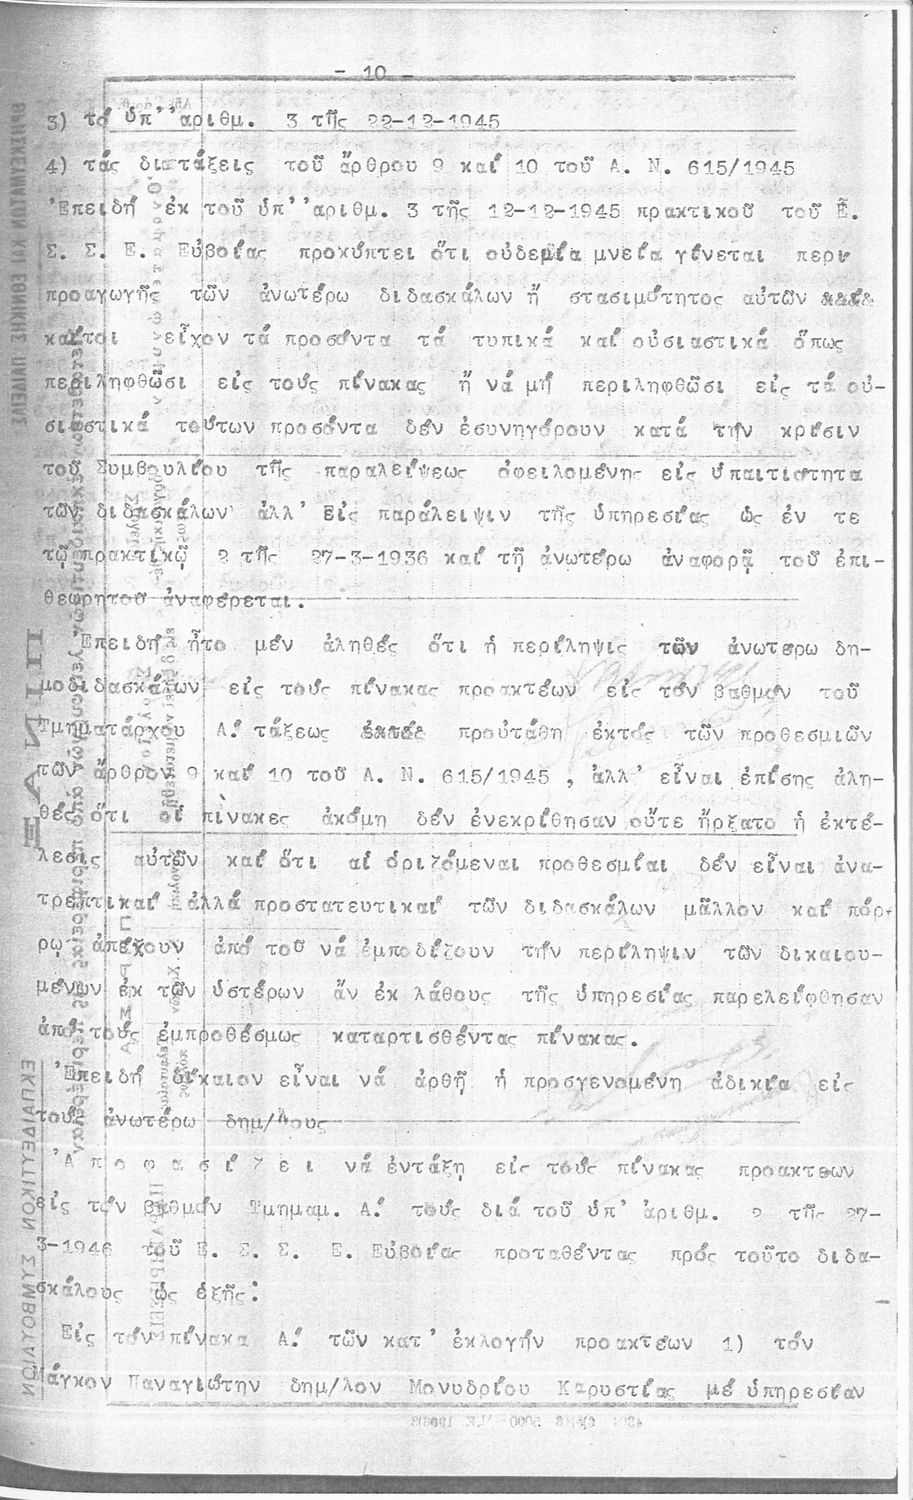 - 10 -
3) τό ὑπ' ἀριθμ. 3 τῆς 22-12-1945
4) τάς διατάξεις τοῦ ἄρθρου 9 καί 10 τοῦ Α. Ν. 615/1945
Ἐπειδή ἐκ τοῦ ὑπ' ἀριθμ. 3 τῆς 12-12-1945 πρακτικοῦ τοῦ Ἐ.
Σ. Σ. Ε. Εὐβοίας προκύπτει ὅτι οὐδεμία μνεία γίνεται περί
προαγωγῆς τῶν ἀνωτέρω διδασκάλων ἤ στασιμότητος αὐτῶν
καίτοι εἶχον τά προσόντα τά τυπικά καί οὐσιαστικά ὅπως
περιληφθῶσι εἰς τούς πίνακας ἤ νά μή περιληφθῶσι εἰς τά οὐ-
σιαστικά τούτων προσόντα δέν ἐσυνηγόρουν κατά τήν κρίσιν
τοῦ Συμβουλίου τῆς παραλείψεως ὀφειλομένης εἰς ὑπαιτιότητα
τῶν διδασκάλων ἀλλ' Εἰς παράλειψιν τῆς ὑπηρεσίας ὡς ἐν τε
τῷ πρακτικῷ 2 τῆς 27-3-1936 καί τῇ ἀνωτέρω ἀναφορᾷ τοῦ ἐπι-
θεωρητοῦ ἀναφέρεται.
Ἐπειδή ἦτο μέν ἀληθές ὅτι ἡ περίληψις τῶν ἀνωτερω δη-
μοδιδασκάλων εἰς τούς πίνακας προακτέων εἰς τόν βαθμόν τοῦ
Τμηματάρχου Α! τάξεως προὐτάθη ἐκτός τῶν προθεσμιῶν
τῶν ἄρθρον 9 καί 10 τοῦ Α. Ν. 615/1945 , ἀλλ' εἶναι ἐπίσης ἀλη-
θές ὅτι οἱ πίνακες ἀκόμη δέν ἐνεκρίθησαν οὔτε ἤρξατο ἡ ἐκτέ-
λεσις αὐτῶν καί ὅτι αἱ ὁριζόμεναι προθεσμίαι δέν εἶναι ἀνα-
τρεπτικαί ἀλλά προστατευτικαί τῶν διδασκάλων μᾶλλον καί πόρ-
ρω ἀπέχουν ἀπό τοῦ νά ἐμποδίζουν τήν περίληψιν τῶν δικαιου-
μένων ἐκ τῶν ὑστέρων ἄν ἐκ λάθους τῆς ὑπηρεσίας παρελείφθησαν
ἀπό τούς ἐμπροθέσμως καταρτισθέντας πίνακας.
Ἐπειδή δίκαιον εἶναι νά ἀρθῇ ἡ προσγενομένη ἀδικία εἰς
τούς ἀνωτέρω δημ/λους
Ἀ π ο φ α σ ί ζ ε ι νά ἐντάξη εἰς τούς πίνακας προακτεων
εἰς τόν βαθμόν Τμημαμ. Α! τούς διά τοῦ ὑπ' ἀριθμ. 2 τῆς 27-
3-1946 τοῦ Ε. Σ. Σ. Ε. Εὐβοίας προταθέντας πρός τοῦτο διδα-
σκάλους ὡς ἑξῆς:
Εἰς τόν πίνακα Α! τῶν κατ' ἐκλογήν προακτέων 1) τόν
Μάγκον Παναγιώτην δημ/λον Μονυδρίου Καρυστίας μέ ὑπηρεσίαν